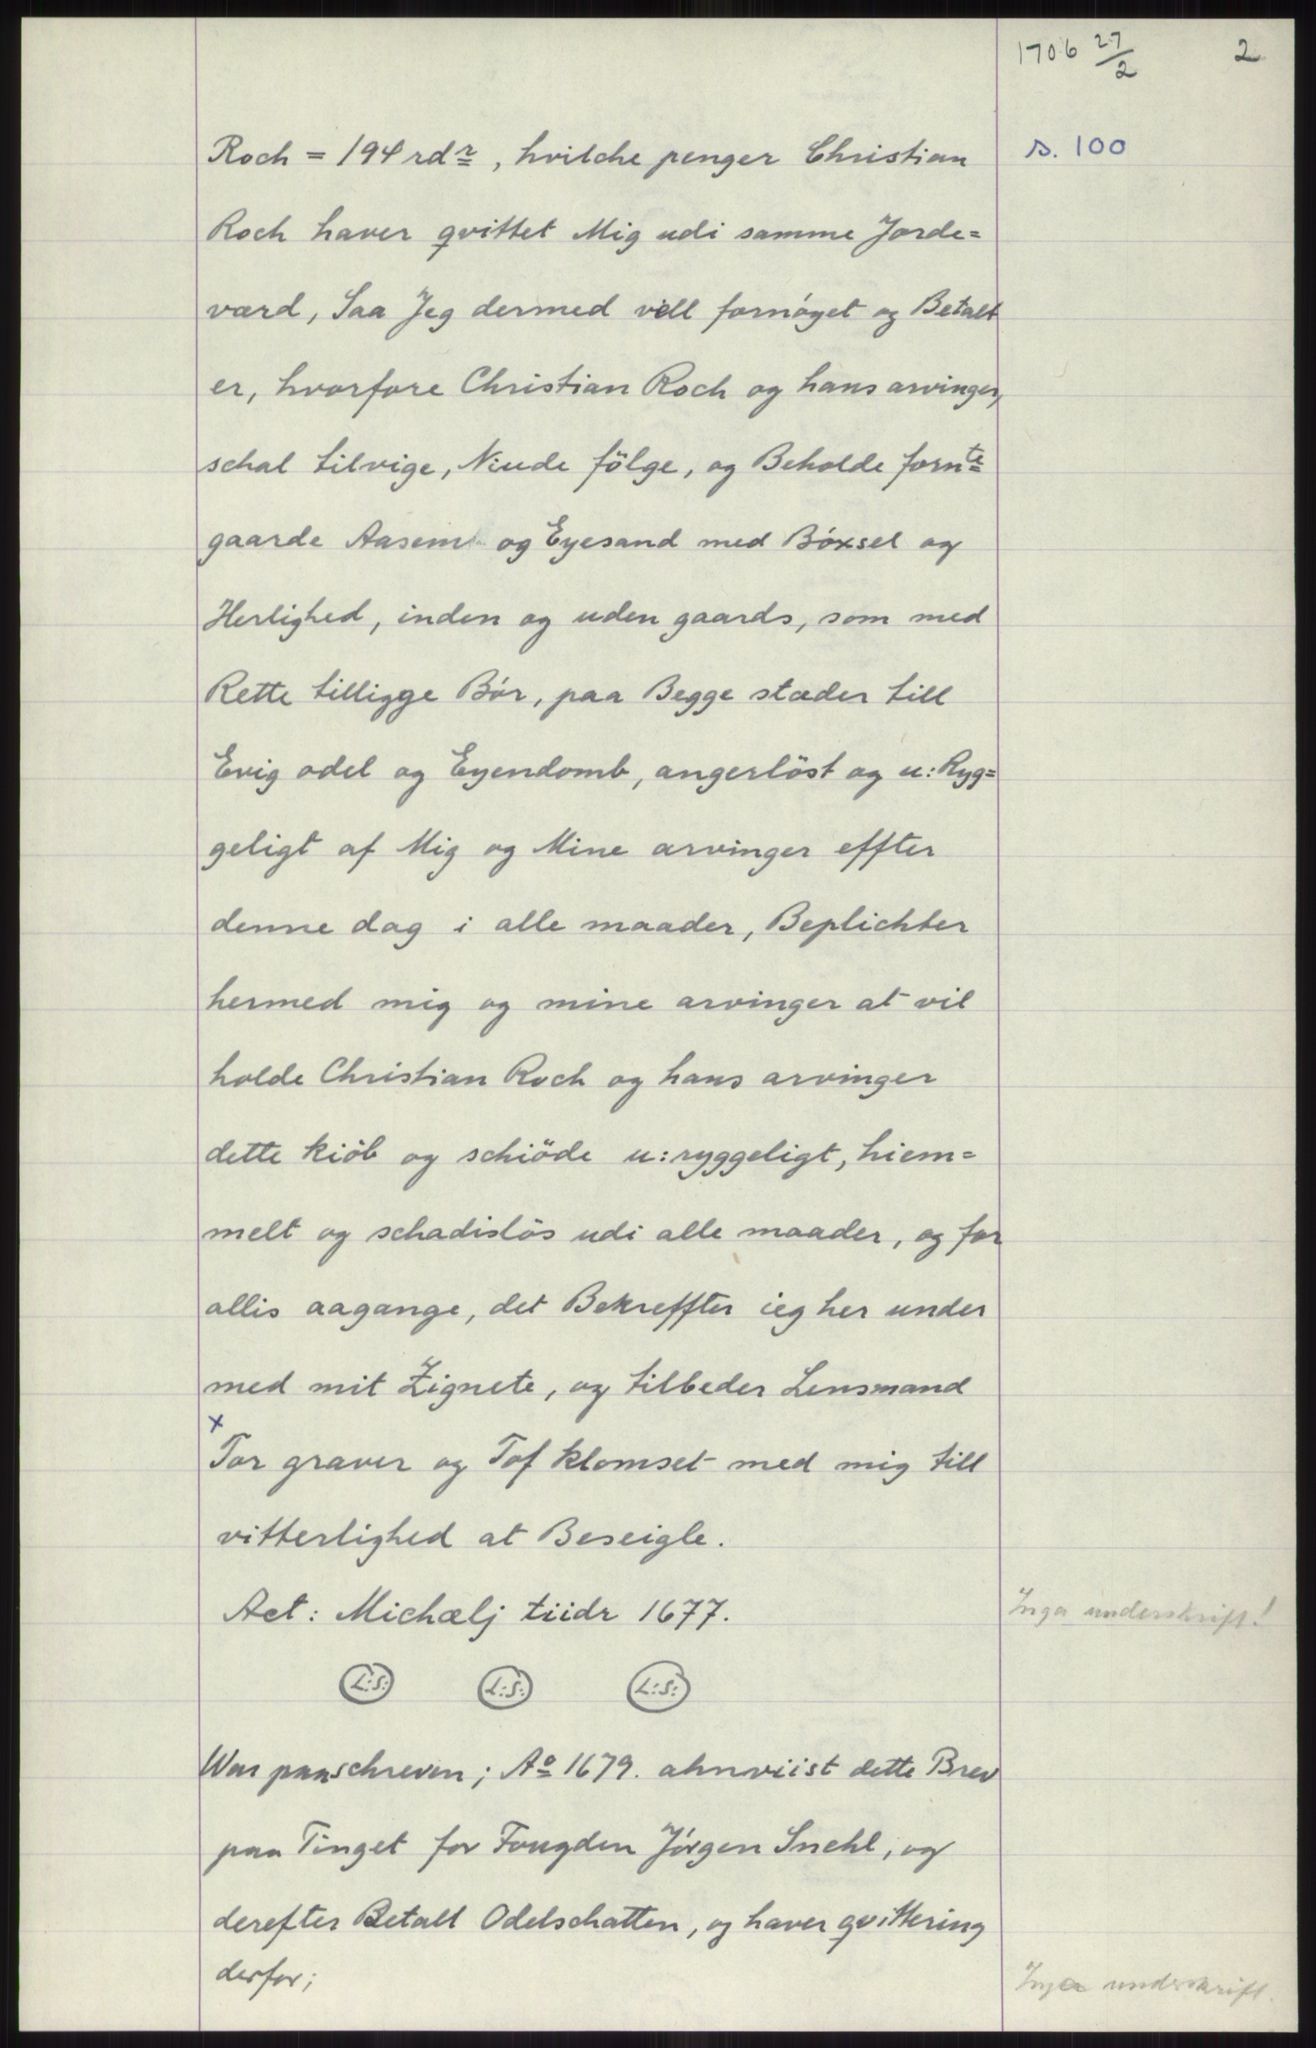 1706 27/2 2
Roch = 194 rdr, hvilche penger Christian
s. 100
Roch haver qvittet Mig udi samme Jorde=
værd, Saa Jeg dermed vell fornøget og Betalt
er, hvorfore Christian Roch og hans arvinger,
schal tilvige, Niude fölge, og Beholde fornte
gaarde Aasem og Eyesand med Bóxsel og
Herlighed, inden og uden gaards, som med
Rette tilligge Bór, paa Begge stæder till
Evig odel og Eyendomb, angerlöst og u: Ryg=
geligt af Mig og Mine arvinger effter
denne dag i alle maader, Beplichter
hermed mig og mine arvinger at vil
holde Christian Roch og hans arvinger
dette kiöb og schiöde u: ryggeligt, hiem=
melt og schadislös udi alle maader, og for
allis aagange, det Bekreffter ieg her under
med mit Zignete, og tilbeder Lensmand
x
Tor graver og Tof klomset med mig till
vitterlighed at Beseigle.
Act: Michælj tiidr 1677.
Inga underskrift!
L:S: L:S: L:S:
War paaschreven; Ao 1679. ahnviist dette Brev
paa Tinget for Fougden Jórgen Snehl, og
derefter Betalt Odelschatten, og haver qvittering
derfor;
Inga underskrift.